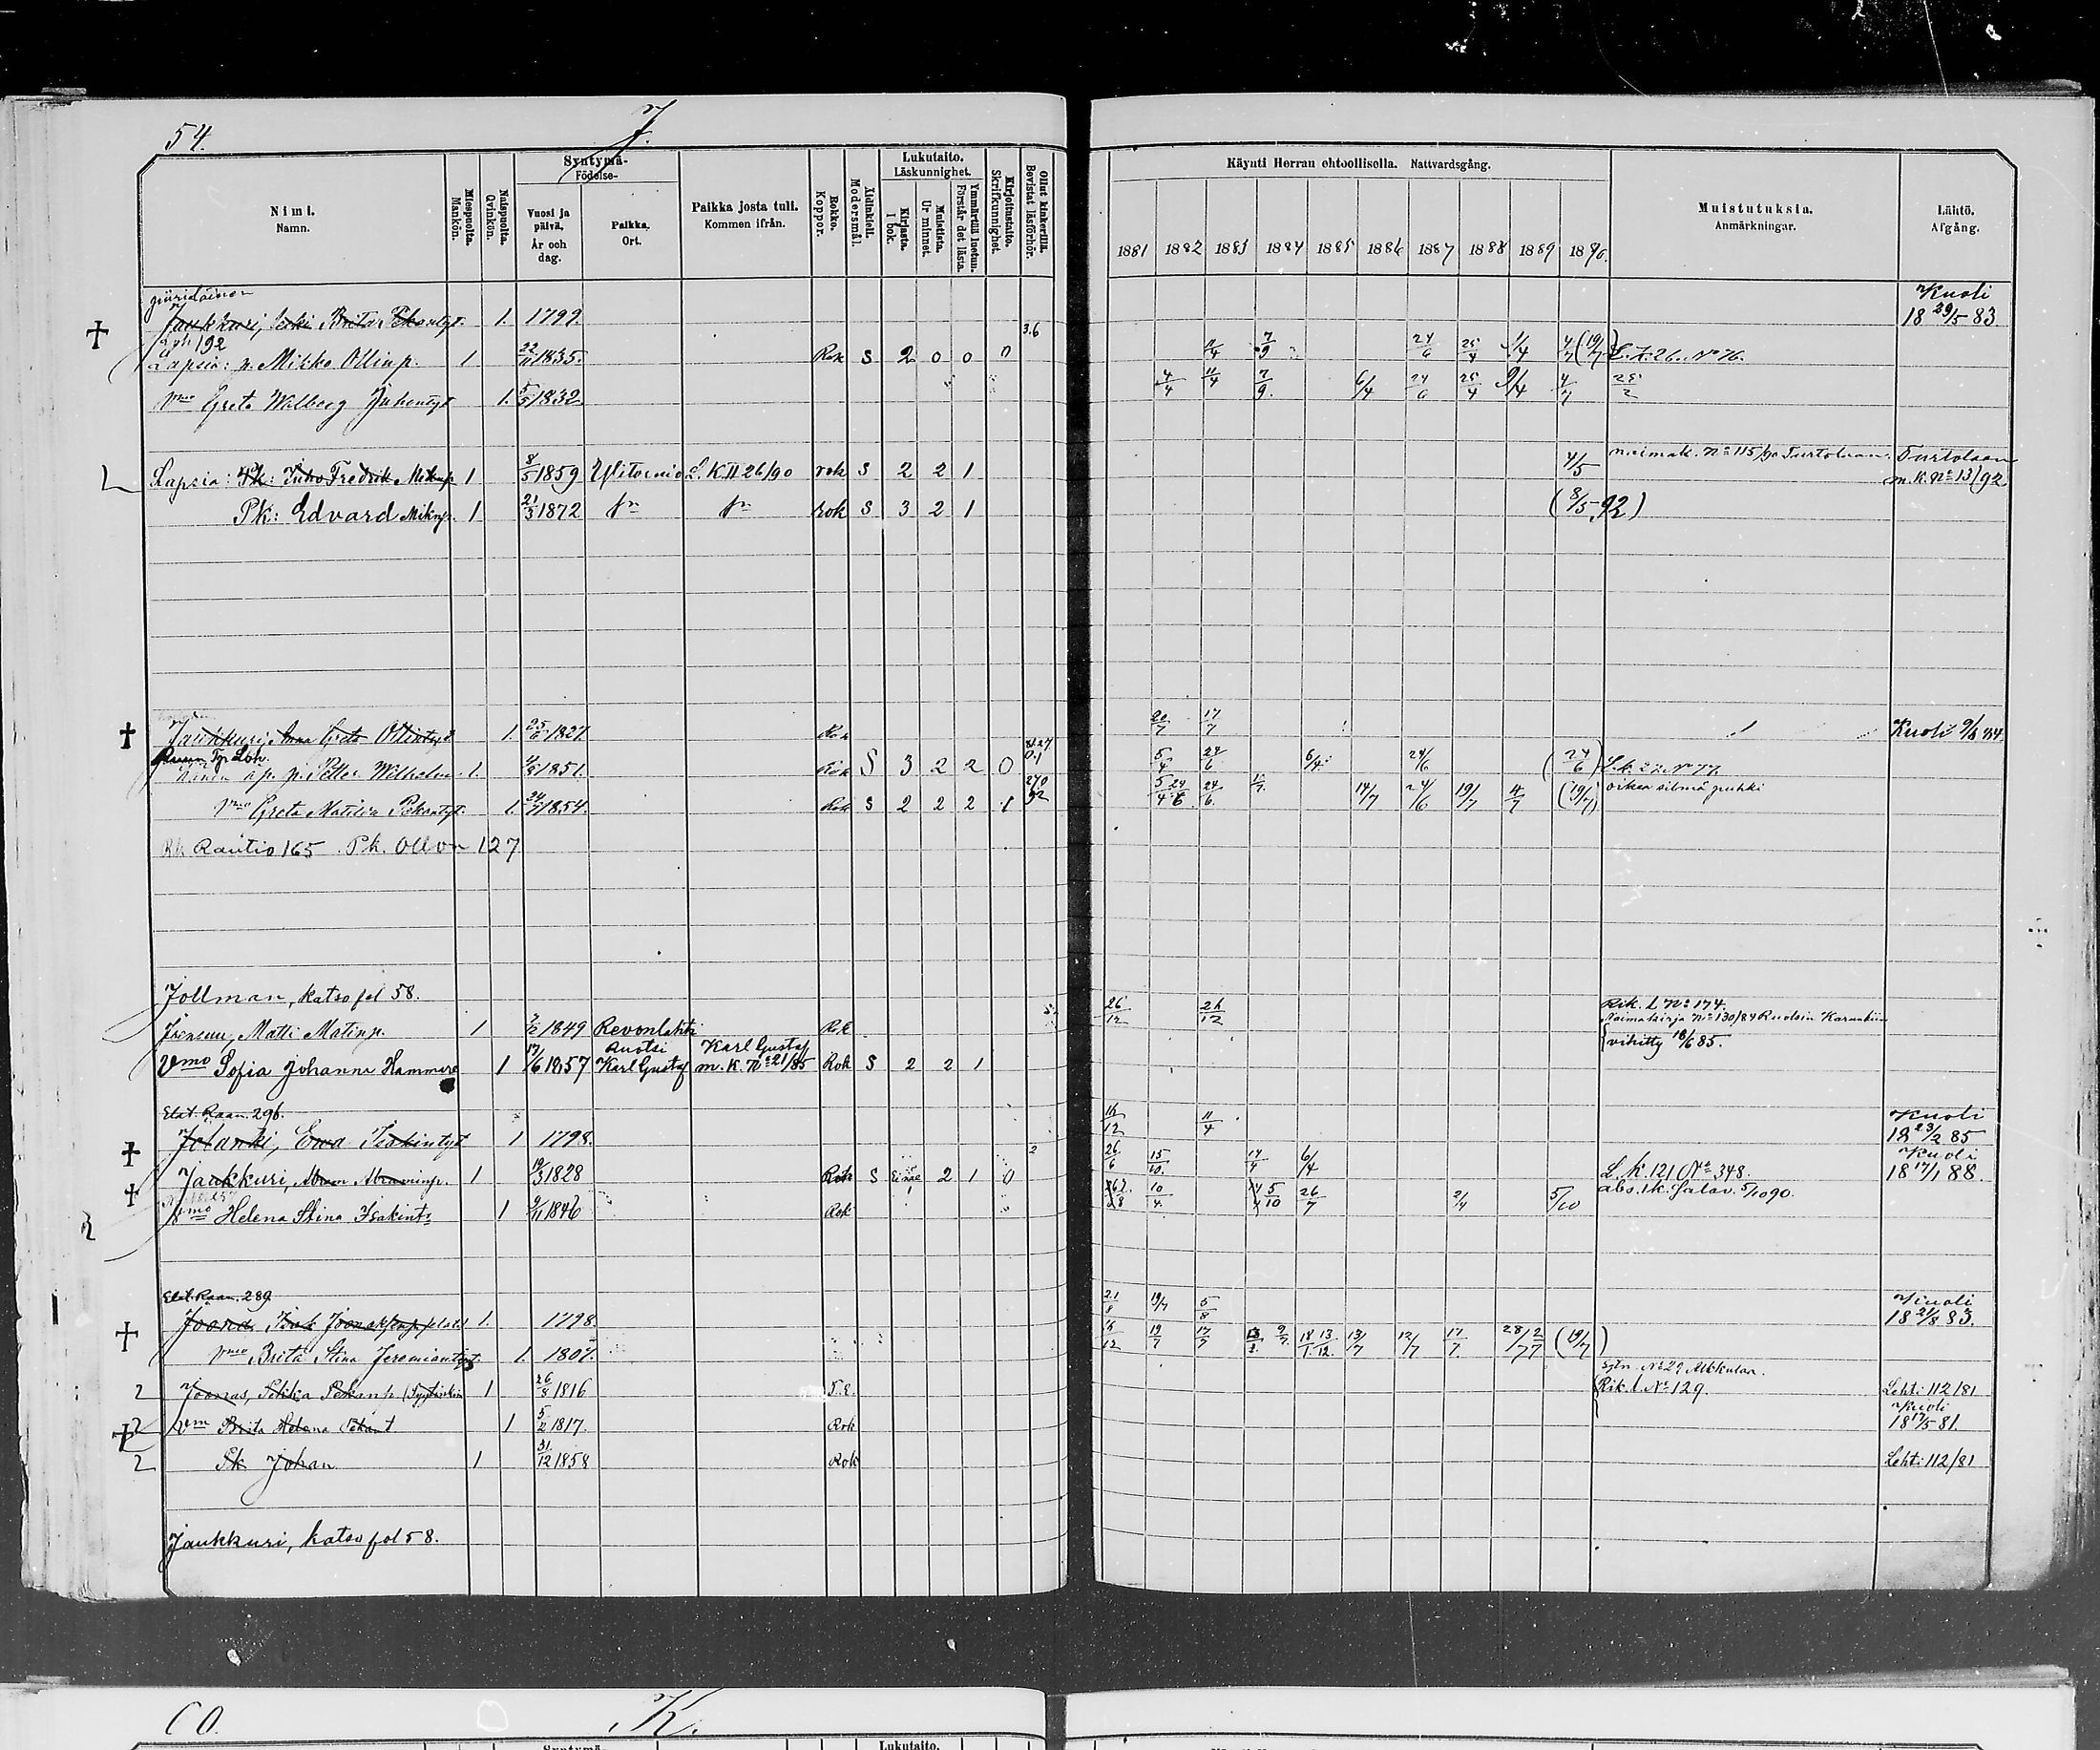 54. J.
Nimi. Namn. Miespuolta. Mankön. Naispuolta. Qvinkön. Syntymä- Födelse- Vuosi ja päivä. År och dag. Paikka. Ort. Paikka josta tuli. Kommen ifrån. Rokko. Koppor. Äidinkieli. Modersmål. Lukutaito. Läskunnighet. Kirjasta. I bok. Muistista. Ur minnet. Ymmärtää luetun. Förstår det lästa. Kirjoitustaito. Skrifkunnighet. Ollut kinkerillä. Bevistat läsförhör.
Käynti Herran ehtoollisella. Nattvardsgång. Muistutuksia. Anmärkningar. Lähtö. Afgång.
1881 1882 1883 1884 1885 1886 1887 1888 1889 1890.
Jaukkuri, Brita Pekantyt. 1. 1799. Kuoli 18 29/5 83
192
Lapsia: p. Mikko Ollinp. 1 22/11 1835. Rok S 2 0 0 0 3.6 11/4 7/9 24/6 25/4 9/4 4/7 (19/7) L.k. 26. No 76.
vmo Greta Walborg Juhontyt 1. 5/5 1832. 4/4 11/4 7/9. 6/4 24/6 25/4 9/4 4/7 25/2
Lapsia: Pk: Juho Fredrik Mikinp 1 8/5 1859 Ylitornio L.K II 26/90 rok S 2 2 1 4/5 naimak. No 115/90 Turtolaan. Turtolaan m.k. No 13/92
Pk: Edvard Mikinp. 1 21/3 1872 rok S 3 2 1 (8/5 92)
Jaukkuri, Anna Greta Ollintyt 1. 25/6 1827. Rok 20/7 17/7 Kuoli 9/8 84
p. Petter Wilhelm 1. 1851. Rok S 3 2 2 0 5/4 24/6 6/4 24/6 (24/6) L.k. 22. No 77.
vmo Greta Matilda Pekantyt. 1. 24/7 1854. Rok S 2 2 2 1 270 92 5/4 24/6 24/6 14/7 24/6 19/7 4/7 (19/7) oikea silmä puhki
Rautio 165 Pk. Ollon 127
Jollman, katso fol 58.
Matti Matinp. 1 1849 Revonlahti Rok 26/12 26/12 Rik. l. No 174.
Naimakirja No 130/84 Ruotsin Karunkiin
vmo Sofia Johanna Hammare 1 17/6 1857 Ruotsi Karl Gustaf Karl Gustaf m.k. No 21/85 Rok S 2 2 1 vihitty 18/6 85.
Elät. Raan. 296.
Jolanki, Ewa Isakintyt 1 1798. 16/12 11/4 Kuoli 18 23/2 85
Jaukkuri, Abram Abraminp. 1 19/3 1828 Rok S Ei näe 2 1 0 26/6 15/10. 14/4 6/4 L.k. 121 No 348. Kuoli 18 17/1 88.
vmo Helena Stina Isakint: 1 9/11 1846 Rok 10/4 5/10 26/7 2/4 5/10 abs. lk. Jalav. 5/10 90.
Elät. Raan. 289
Joona, Isak Joonakp. 1. 1798. 21/8 19/7 5/8 Kuoli 18 21/8 83.
vmo Brita Stina Jeremiantyt. 1. 1807. 16/12 19/7 17/7 13/2. 9/7. 18/1 13/12. 13/7 12/7 17/7. 28/7 2/7 (19/7)
Joonas, Pekka Pekanp. 1 26/8 1816 No 29 Alkkulan.
Rik. l. No 129. Lehti 112/81
vm Brita Helena Pekant 1 5/2 1817. Rok Kuoli 18 17/5 81.
Pk Johan 1 31/12 1858 Rok Lehti 112/81
Jaukkuri, katso fol 58.
K.
Lukutaito.